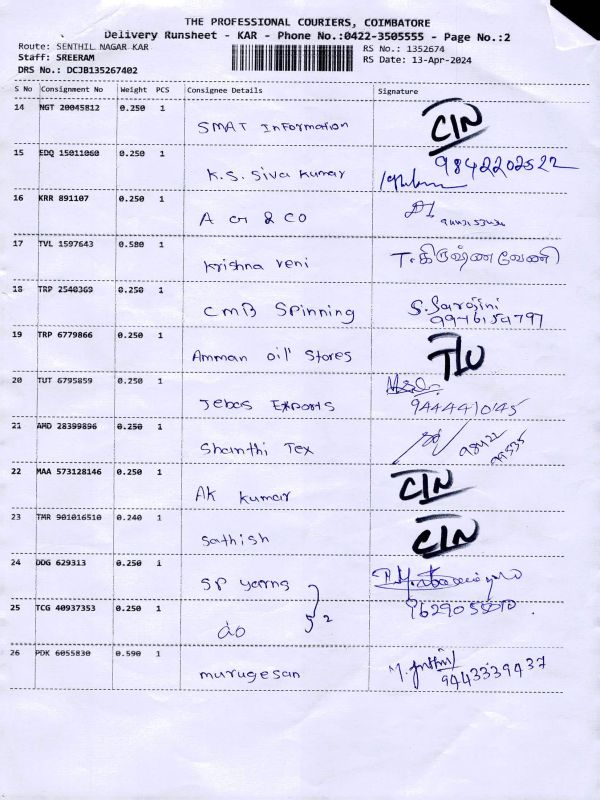 THE PROFESSIONAL COURIERS, COIMBATORE
Delivery Runsheet - KAR - Phone No.:0422-3505555 - Page No.:2
Route: SENTHIL NAGAR KAR
RS No.: 1352674
Staff: SREERAM
RS Date: 13-Apr-2024
DRS No.: DCJB135267402
S No Consignment No Weight PCS Consignee Details Signature
14 NGT 20045812 0.250 1 SMAT Information C/N
15 EDQ 15011060 0.250 1 K.S. Siva Kumar 9842202522
16 KRR 891107 0.250 1 A G & CO
17 TVL 1597643 0.580 1 Krishna veni T. கிருஷ்ணவேணி
18 TRP 2540369 0.250 1 CMB Spinning S. Sarojini
9946154797
19 TRP 6779866 0.250 1 Amman oil Stores T/U
20 TUT 6795859 0.250 1 Jebas Exports
9444410145
21 AMD 28399896 0.250 1 Shanthi Tex
22 MAA 573128146 0.250 1 AK Kumar C/N
23 TMR 901016510 0.240 1 Sathish C/N
24 DDG 629313 0.250 1 SP yarns
25 TCG 40937353 0.250 1 do 2
26 PDK 6055830 0.590 1 murugesan
9443339437